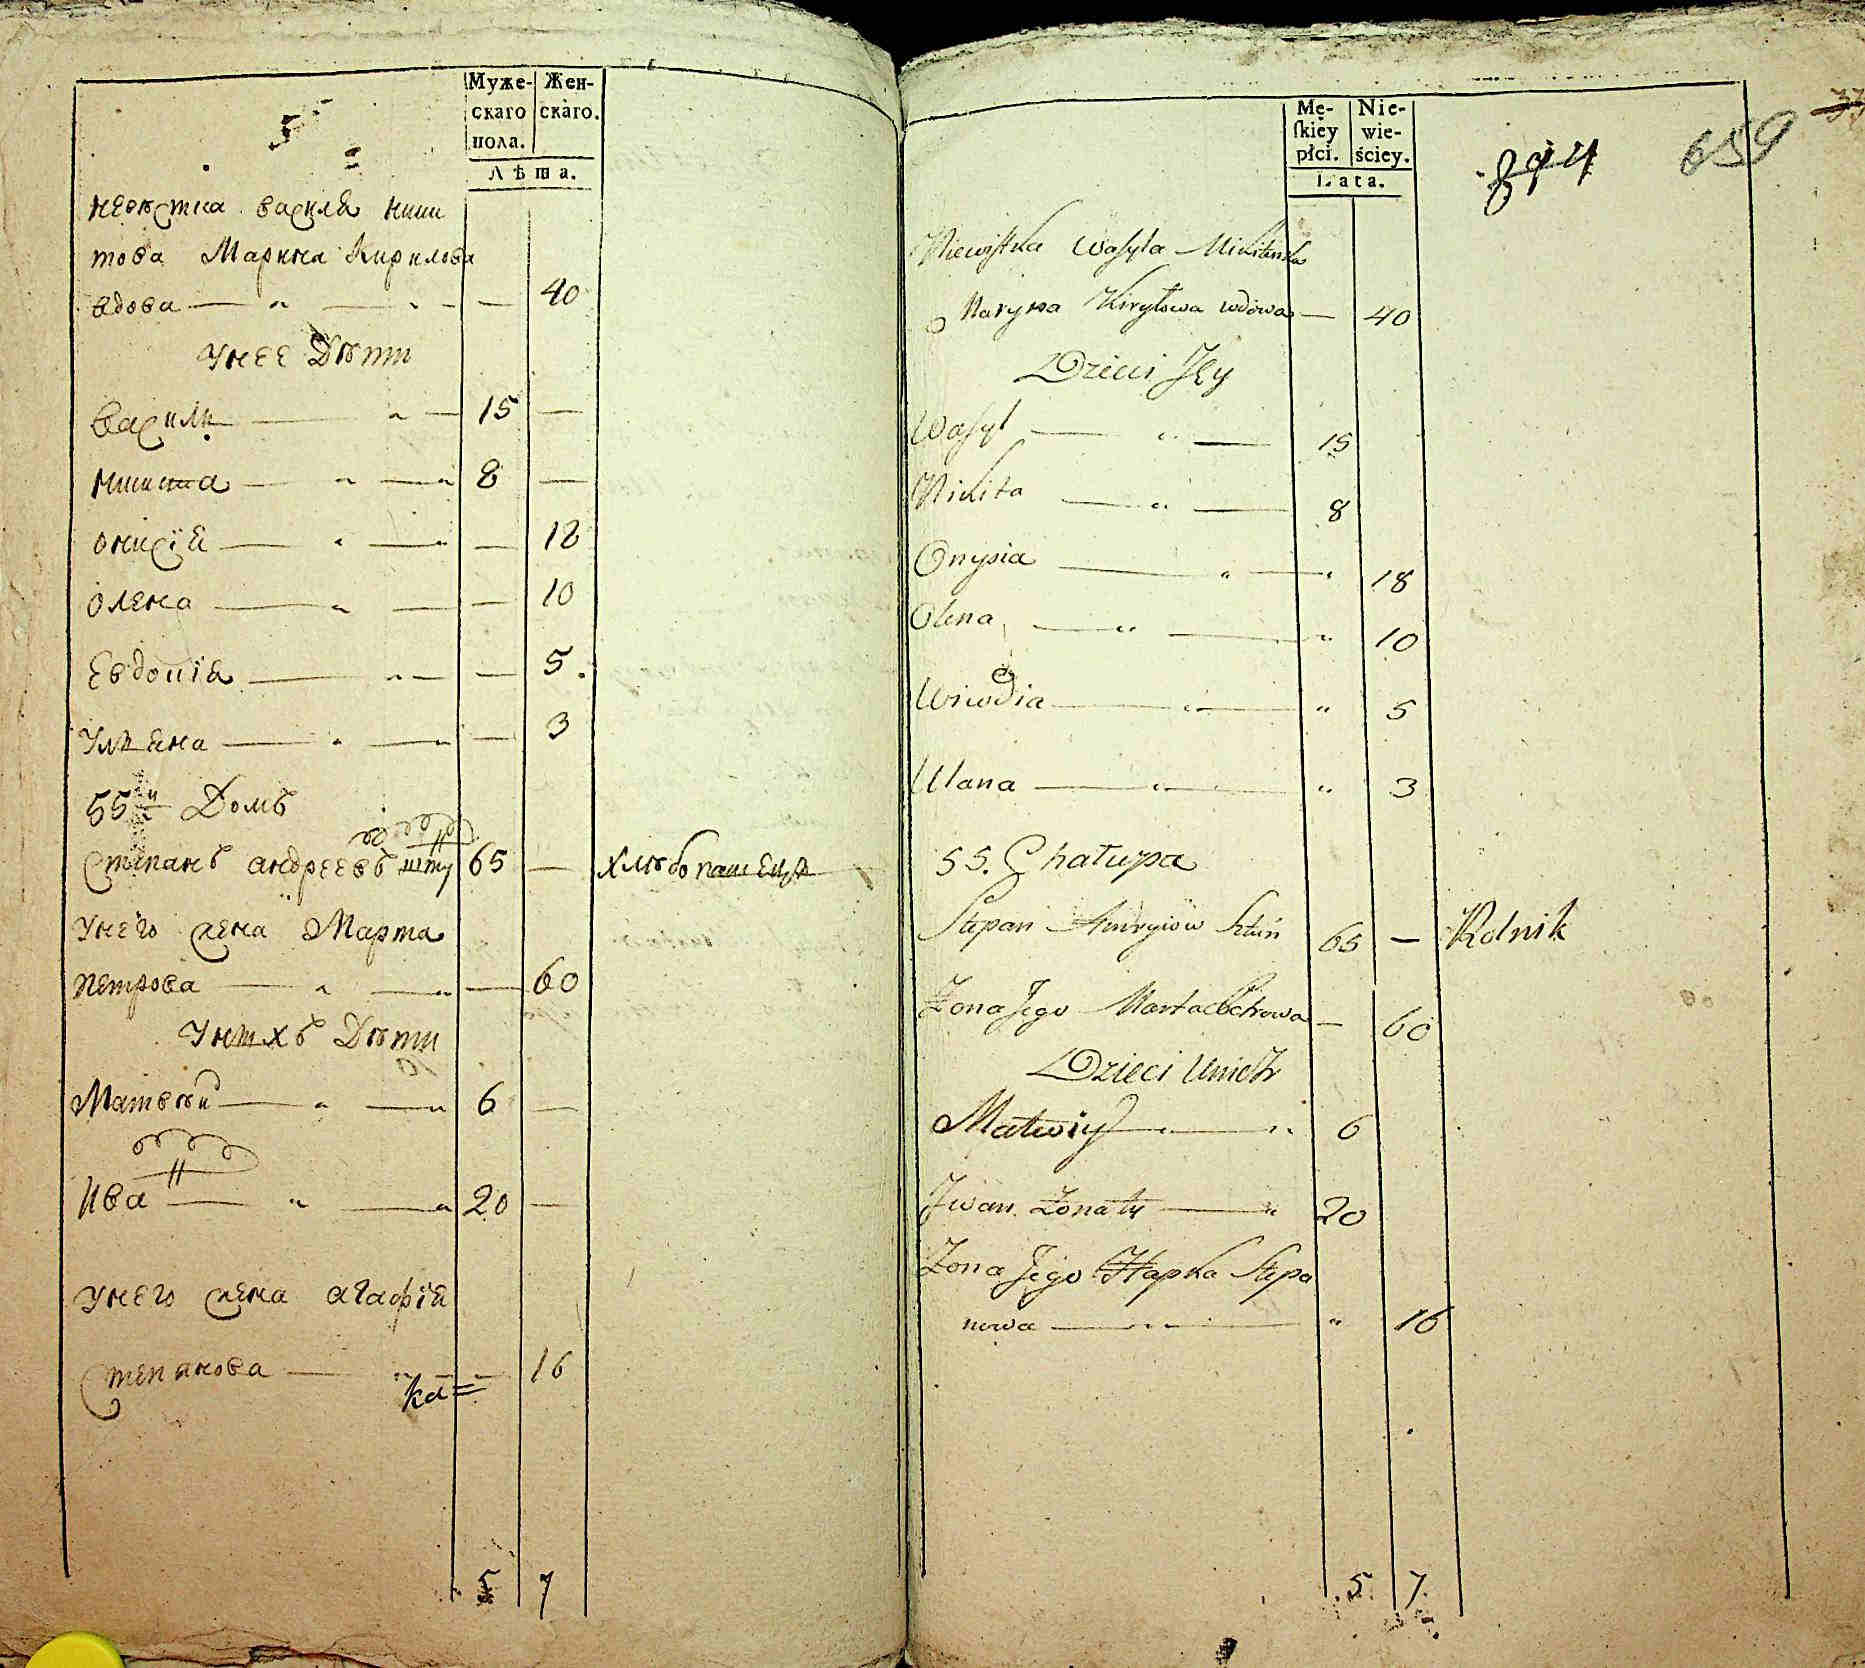 Муже-
скаго
пола.
Жен-
скаго.
Лѣта.
5
невѣстка василя ники
това Марина Кирилова
вдова — „ — „ — — 40
Унее Дѣти
василь — „ — 15 —
никита — „ — „ 8 —
онисія — „ — „ — 18
олена — „ — — 10
Евдокія — „ — — 5.
Ульяна — „ — „ — 3
55й Домъ
Степанъ андреевъ 65 — хлѣбопашецъ
Унего жена Марта
петрова — „ — „ — 60
Унихъ Дѣти
Матвѣй — „ — „ 6 —
Ива — „ — „ 20 —
Унего жена агафія
Степанова — 16
5 7
Mę-
skiey
płci.
Nie-
wie-
ściey.
Lata.
659
Niewistka Wasyla Mikitowa
Maryna Kiryłowa wdowa — 40
Dzieci Jey
Wasyl — „ — 15
Nikita — „ — 8
Onysia — „ — „ 18
Olena — „ — „ 10
Wiwdia — „ — „ 5
Ulana — „ — „ 3
55. Chałupa
Stepan Andryiow 65 — Rolnik
Żona Jego Marta Petrowa — 60
Dzieci Unich
Matwiy — „ 6
Jwan Żonaty — „ 20
Żona Jego Hapka Stepa
nowa — „ — „ 16
5. 7.